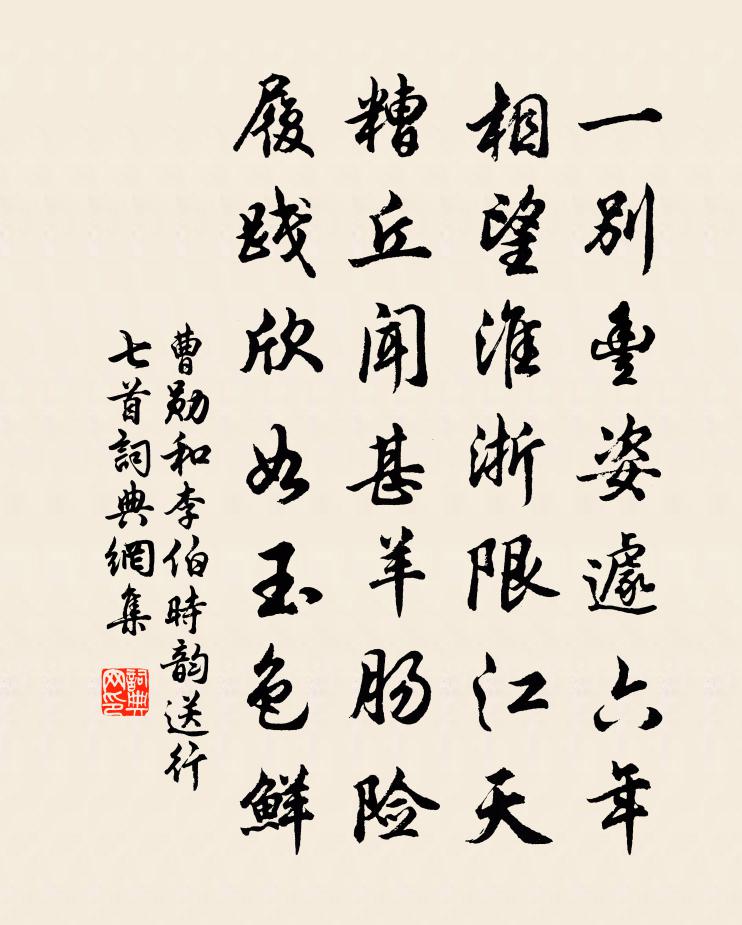 一别豐姿遽六年
相望淮浙限江天
糟丘聞甚羊肠险
履践欣如玉色鮮
曹勋和李伯時韵送行
七首詞典網集
詞典网印